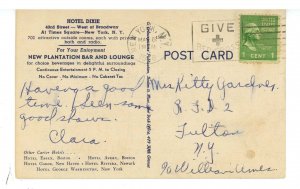 HOTEL DIXIE
42nd Street – West of Broadway
At Times Square – New York, N. Y.
700 attractive outside rooms, each with private
bath and radio.
For Your Enjoyment
NEW PLANTATION BAR AND LOUNGE
for choice beverages in delightful surroundings
Continuous Entertainment 5 P. M. to Closing
No Cover - No Minimum - No Cabaret Tax
Having a good
time & seen some
good shows.
Clara.
Other Carter Hotels
Hotel Essex, Boston Hotel Avery, Boston
Hotel Garde, New Haven Hotel Rivera, Newark
Hotel George Washington, New York
GIVE
POST CARD
1 CENT 1
Mrs Kitty
R. F. D. 2
Fulton
N.Y.
℅ William